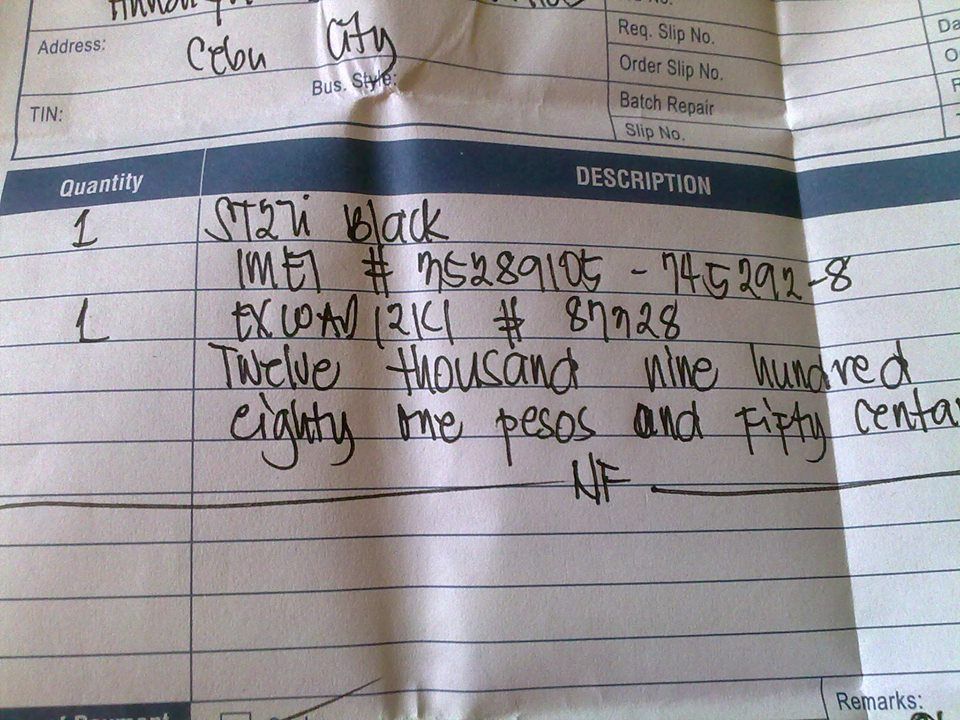 Address: Cebu City
Req. Slip No.
Order Slip No.
TIN: Bus. Style:
Batch Repair
Slip No.
Quantity DESCRIPTION
1 ST27i Black
IMEI # 35289105-745292-8
1
Twelve thousand nine hundred
eighty one pesos and fifty
NF
Remarks: